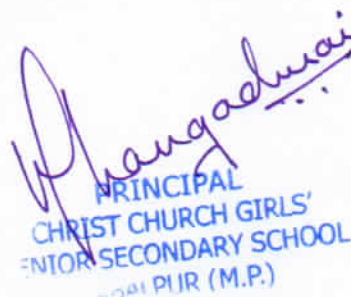 PRINCIPAL
CHRIST CHURCH GIRLS'
ENIOR SECONDARY SCHOOL
PUR (M.P.)